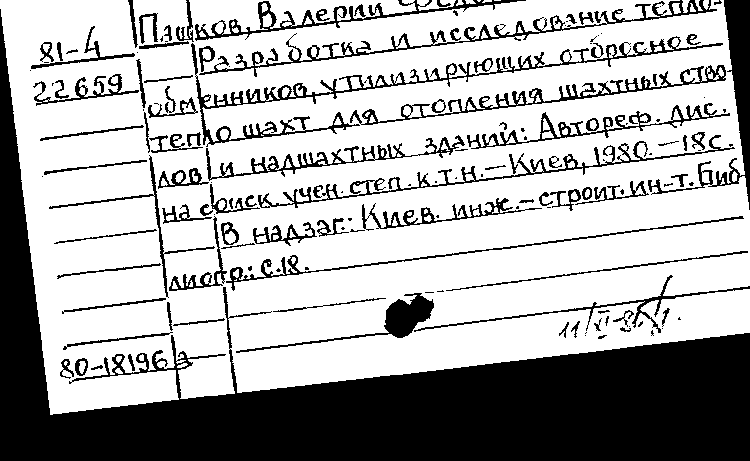 81-4
22659
Пашков, Валерий
Разработка и исследование тепло-
обменников, утилизирующих отбросное
тепло шахт для отопления шахтных ство-
лов и надшахтных зданий: Автореф. дис.
на соиск. учен. степ. к.т.н. — Киев, 1980. — 18с.
В надзаг.: Киев. инж.-строит. ин-т. Биб-
лиогр.: с.18.
80-18196а